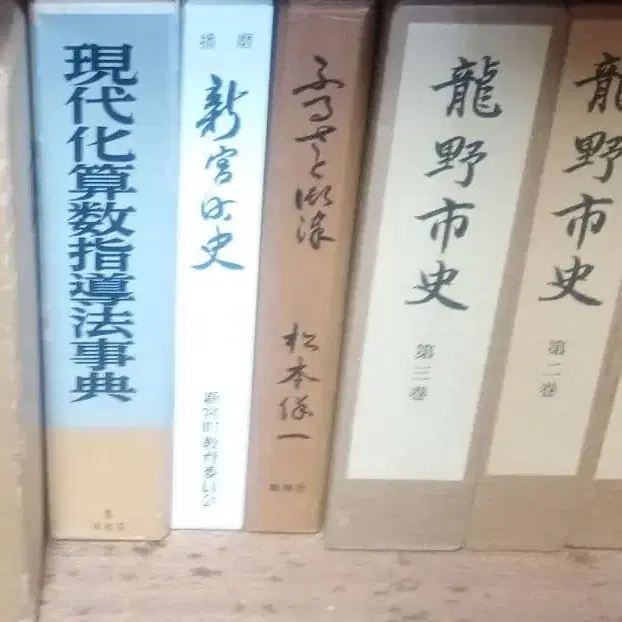 現代化算数指導法事典
播磨
新宮町史
新宮町教育委員会
ふるさと御津
松本保一
龍野市史
第三巻
龍野市史
第二巻